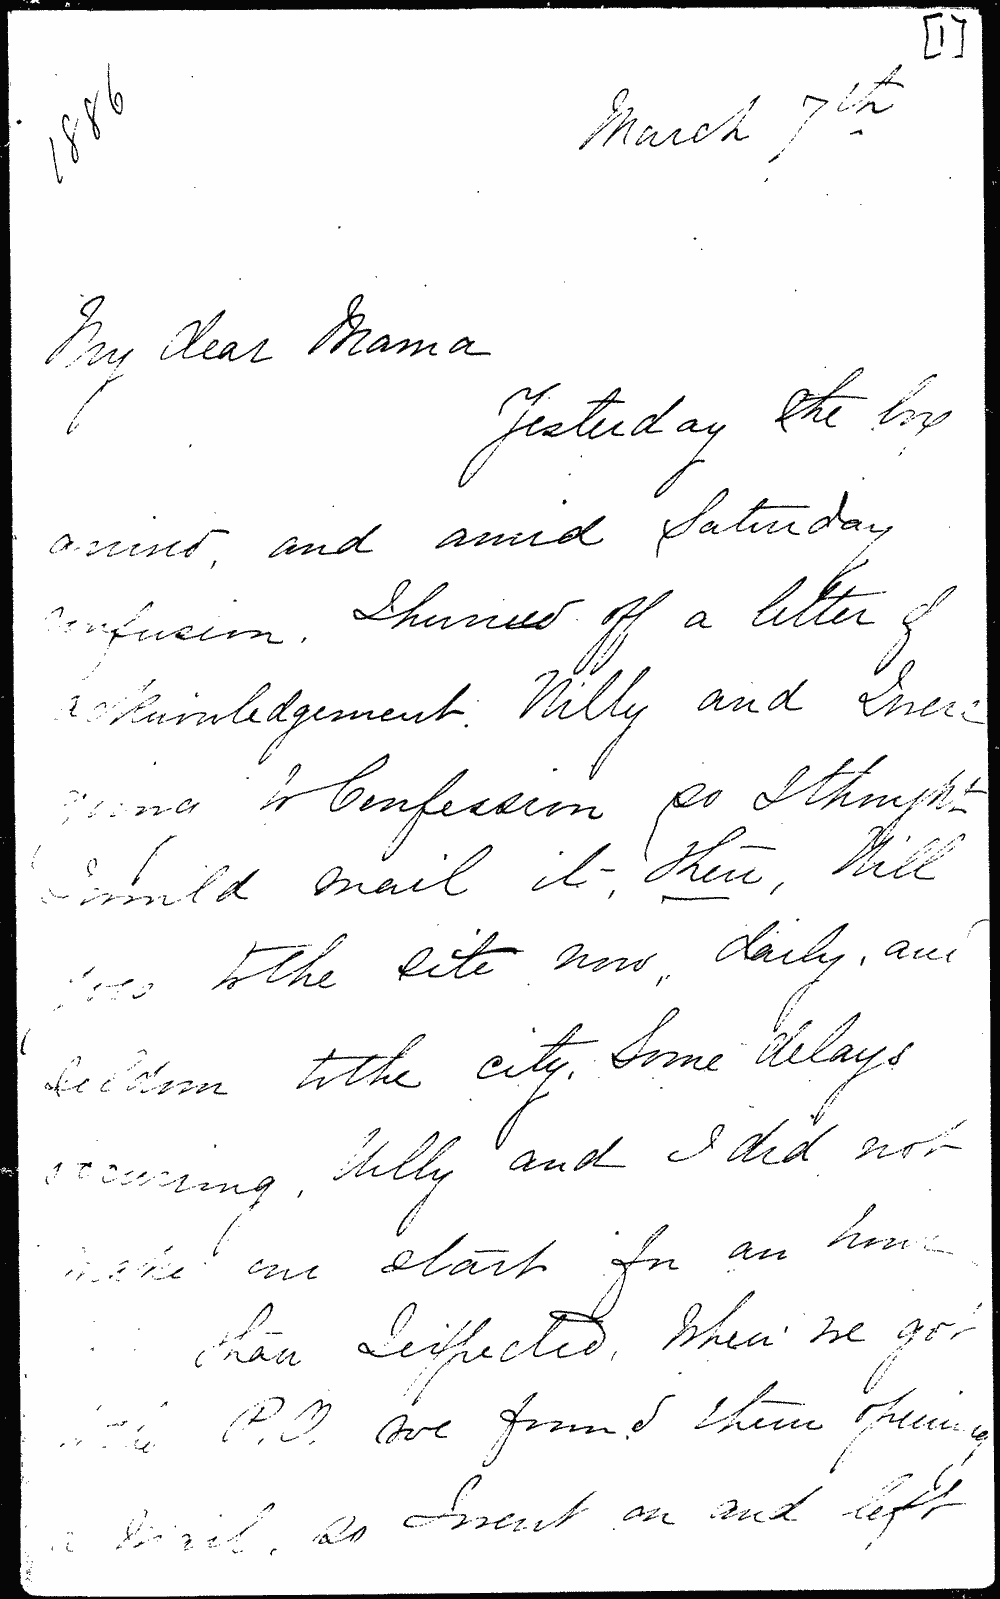 [1]
1886
March 7th
My dear Mama
Yesterday the box
arrived, and amid Saturday
confusion. I hurried off a letter of
acknowledgement. Willy and I were
going to Confession so I thought
I would mail it, there, Will
goes to the site now, daily, and
seldom to the city. Some delays
occurring, Willy and I did not
make our start for an hour
than I expected, When we got
to the P.O. we found them opening
a mail, so I went on and left